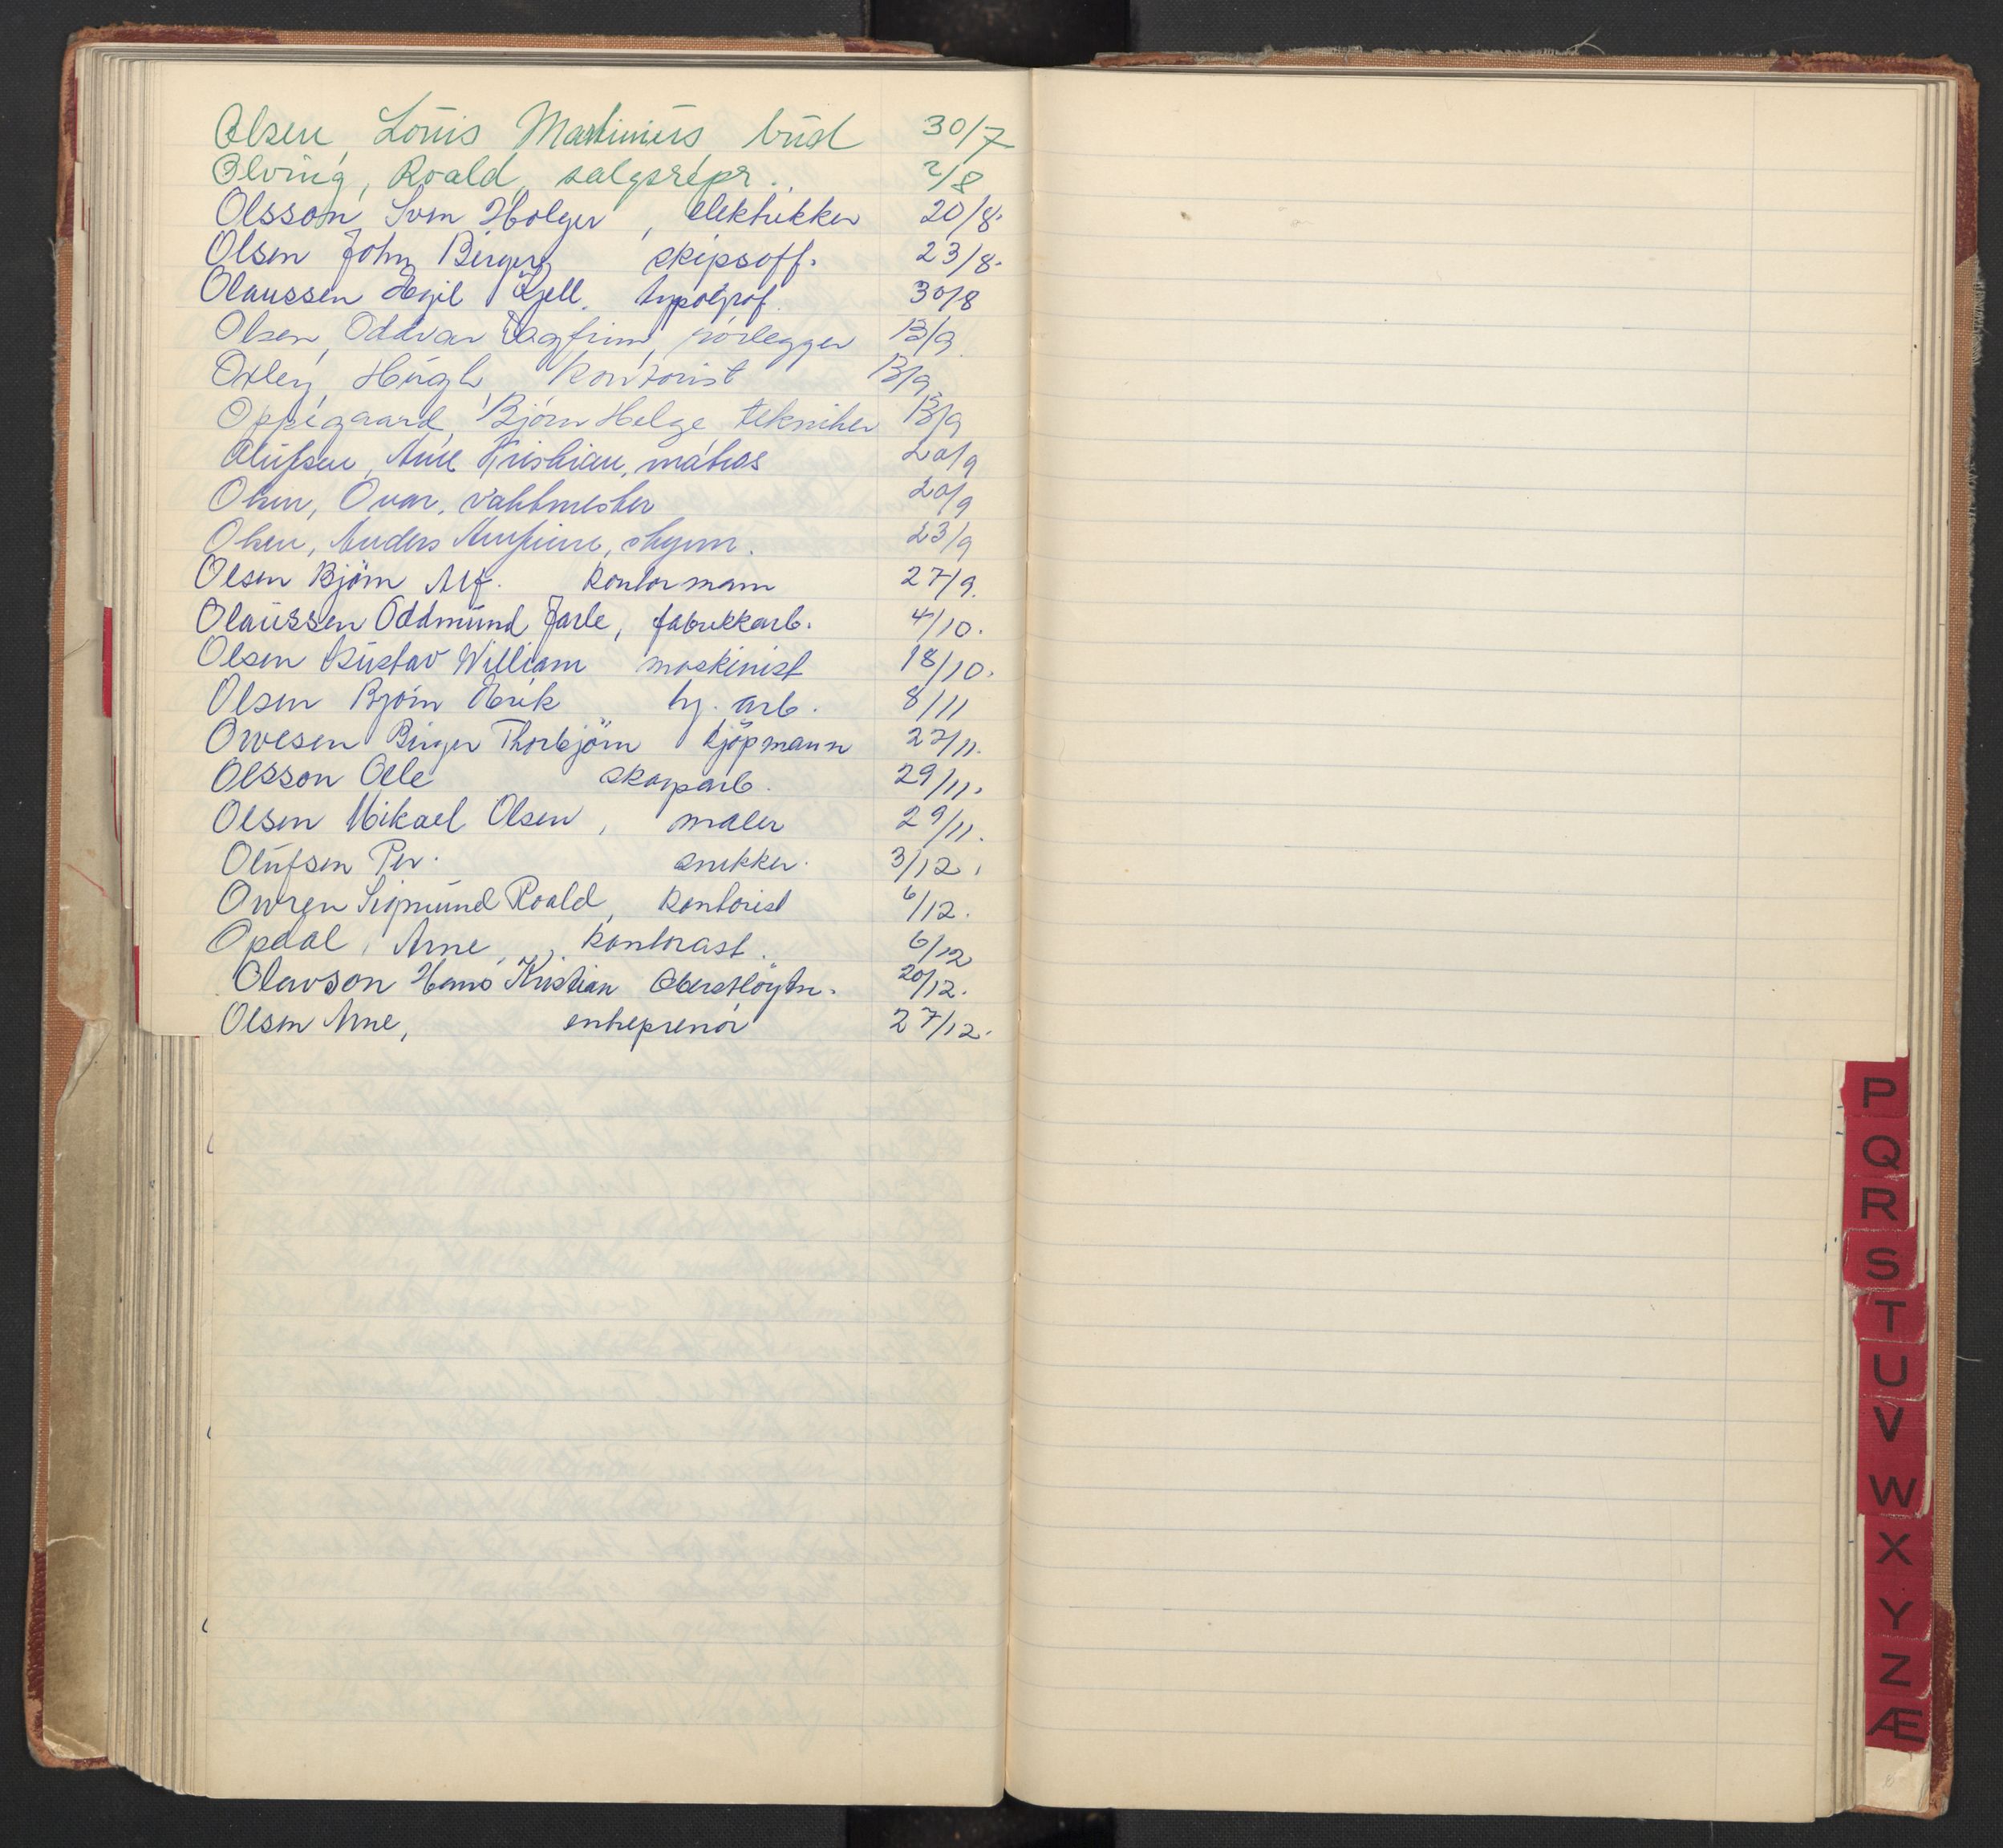 Olsen, Louis Martinius bud 30/7
Olving, Roald, salgsrepr. 2/8
Olsson Sven Holger, elektrikker 20/8.
Olsen John Birger, skipsoff. 23/8.
Olaussen Egil Kjell. typograf. 30/8
Olsen, Oddvar Dagfinn, rörlegger 13/9
Oxley, Hugh, Kontorist 13/9
Oppegaard, Bjørn Helge tekniker 13/9
Olufsen, Arne Kristian, matros 20/9
Olsen, Ovar, vaktmester 20/9
Olsen, Anders Arnfinn, styrm. 23/9
Olsen Björn Alf. kontormann 27/9.
Olaussen Oddmund Jarle, fabrikkarb. 4/10.
Olsen Gustav William maskinist 18/10.
Olsen Bjørn Erik hj. arb. 8/11
Owesen Birger Thorbjörn kjöpmann 27/11.
Olsson Olle skogarb. 29/11.
Olsen Mikael Olsen, maler 29/11.
Olufsen Per. snekker. 3/12.
Owren Sigmund Roald, kontorist 6/12.
Opdal, Arne, kontorass. 6/12
Olavson Hans Kristian Oberstløytn. 20/12.
Olsen Arne, entreprenör 27/12.
P
Q
R
S
T
U
V
W
X
Y
Z
Æ